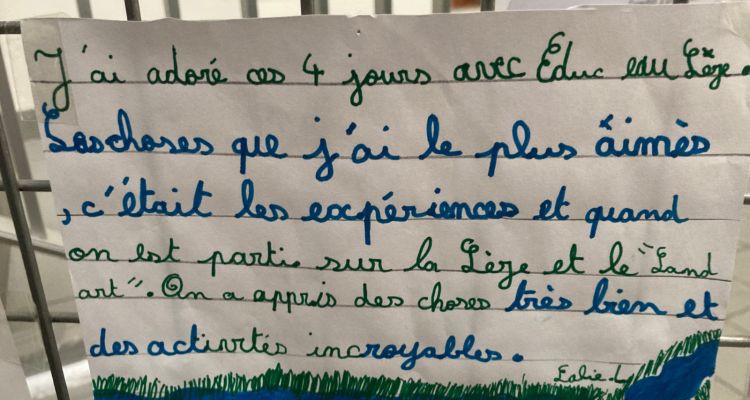 J'ai adoré ces 4 jours avec Éduc eau Lèze.
Les choses que j'ai le plus aimès
, c'était les expériences et quand
on est partie sur la Lèze et le "Land
art". On a appris des choses très bien et
des activités incroyables.
Ealie.L